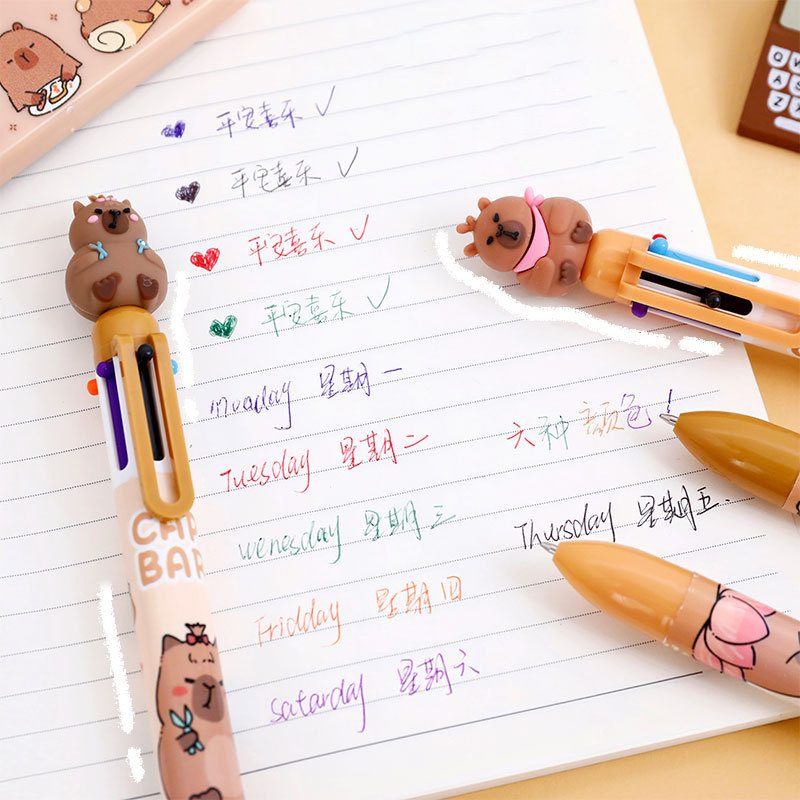 平安喜乐 ✓
平安喜乐 ✓
平安喜乐 ✓
平安喜乐 ✓
muaday 星期一
Tuesday 星期二
六种颜色!
wenesday 星期三
Thursday 星期五.
Fridday 星期四
Satarday 星期六
CAP
BAR
Q
A
Z